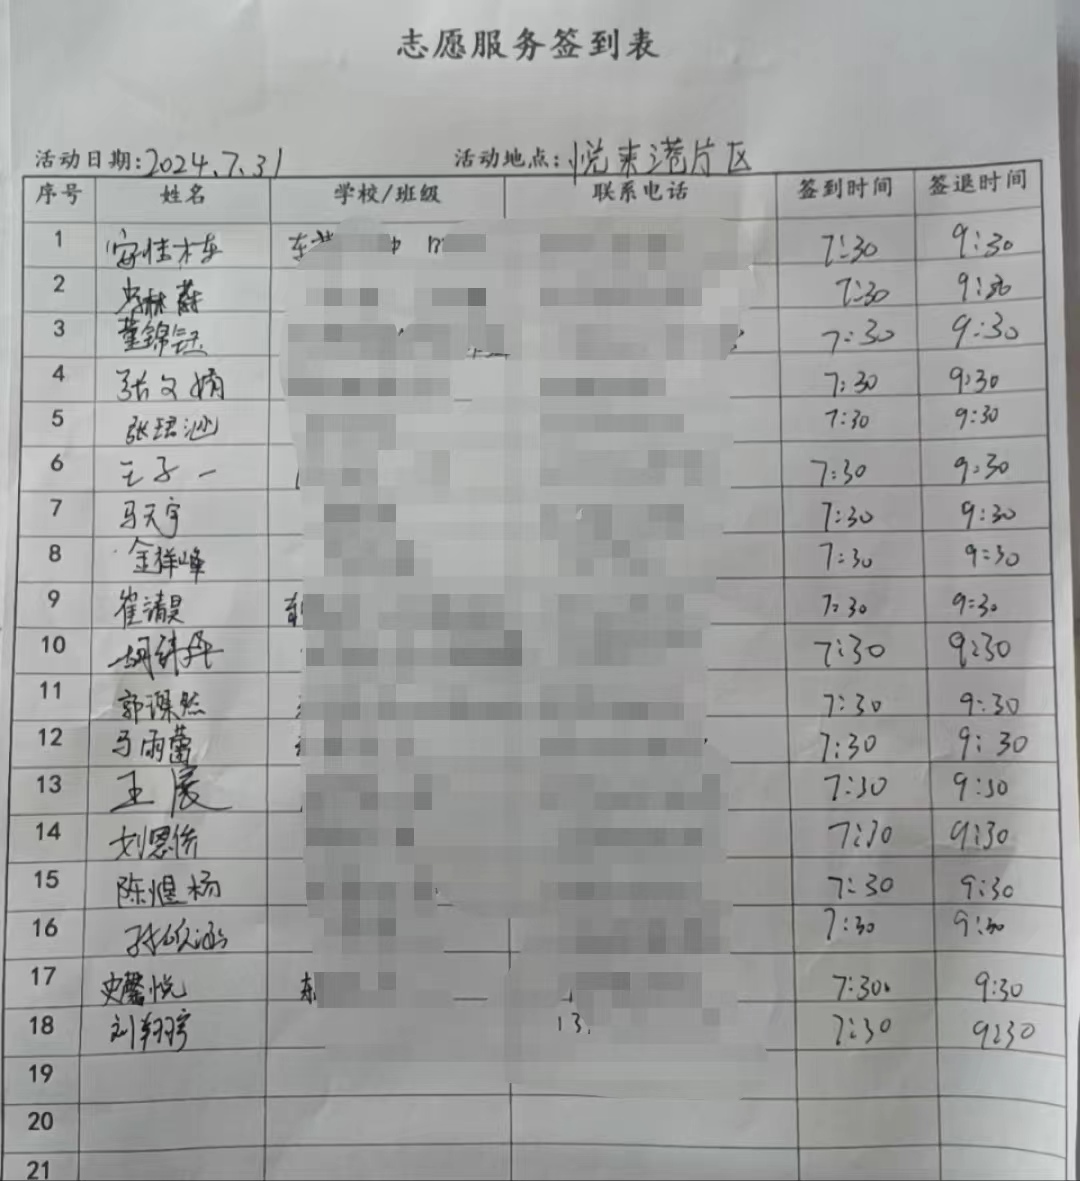 志愿服务签到表
活动日期:2024.7.31 活动地点:悦来港片区
序号 姓名 学校/班级 联系电话 签到时间 签退时间
1 安佳木 7:30 9:30
2 林蔚 7:30 9:30
3 董锦钰 7:30 9:30
4 张文娟 7:30 9:30
5 张珺涵 7:30 9:30
6 王子一 7:30 9:30
7 马天宇 7:30 9:30
8 金祥峰 7:30 9:30
9 崔清昊 东 7:30 9:30
10 胡 7:30 9:30
11 郭谍然 7:30 9:30
12 马雨蕾 7:30 9:30
13 王宸 7:30 9:30
14 刘恩侨 7:30 9:30
15 陈煜杨 7:30 9:30
16 涵 7:30 9:30
17 史馨悦 东 7:30 9:30
18 刘翔宇 13. 7:30 9:30
19
20
21